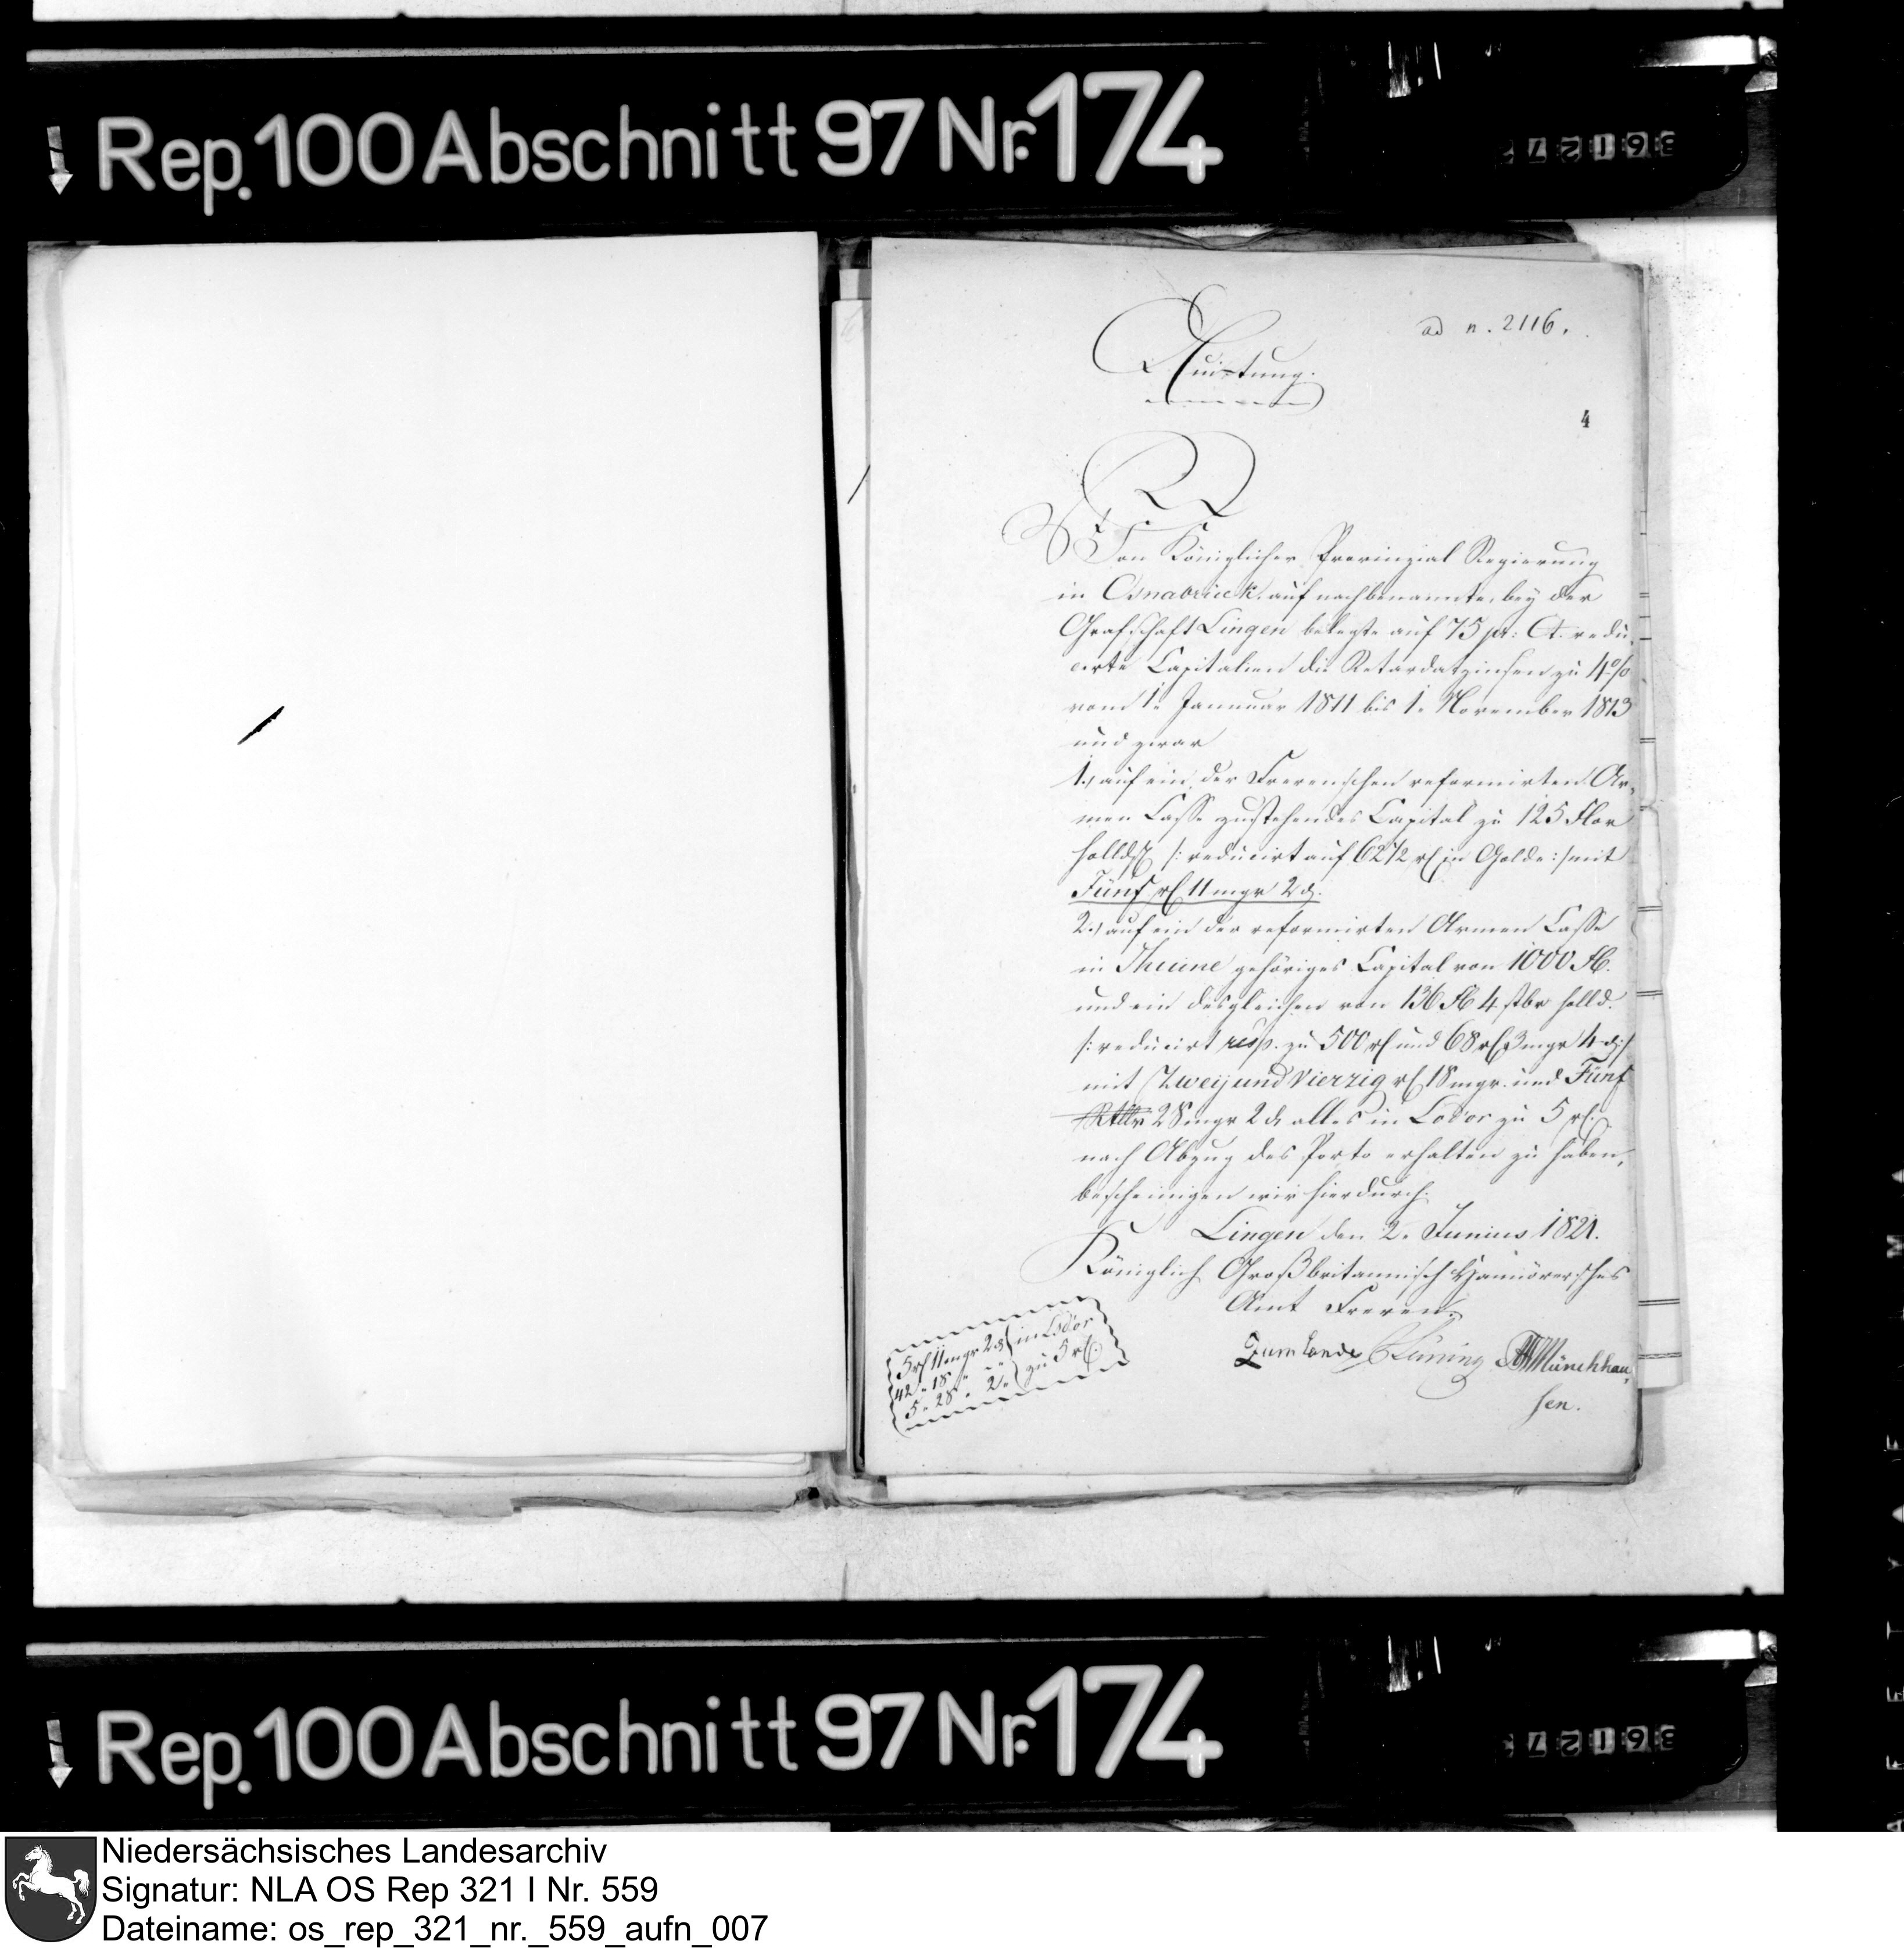 Rep. 100 Abschnitt 97 Nr. 174
ad n. 2116.
Quittung.
4
Von Königlicher Provinzial Regierung
in Osnabrück, auf nachbenannte, bey der
Grafschaft Lingen belegte auf 75 pr: Ct. redu-
cirte Capitalien die Retardatzinsen zu 4%
vom 1. Januar 1811 bis 1. November 1813
und zwar
1., auf ein, der Frerenschen reformirten Ar-
men Casse zustehendes Capital zu 125 Flor
holld. /: reducirt auf 62½ rℓ in Golde :/ mit
Fünf rℓ 11 mgr 2 d.
2., auf ein der reformirten Armen Casse
in Thuine gehöriges Capital von 1000 Fl.
und ein desgleichen von 136 Fl 4 stbr holld.
/: reducirt resp. zu 500 rℓ und 68 rℓ 3 mgr 4 d :/
mit Zwey und Vierzig rℓ 18 mgr. und Fünf
Rthlr 28 mgr 2 d, alles in Lsdor zu 5 rℓ.
nach Abzug des Porto erhalten zu haben,
bescheinigen wir hierdurch.
Lingen den 2. Junius 1821.
Königlich Großbritannisch Hannöversches
Amt Freren.
5 rℓ 11 mgr 2 d } in Lsdor
42 " 18 " " } zu 5 rℓ.
5 " 28 " 2 "
Zum Sande Münchhau-
sen.
Rep. 100 Abschnitt 97 Nr. 174
Niedersächsisches Landesarchiv
Signatur: NLA OS Rep 321 I Nr. 559
Dateiname: os_rep_321_nr._559_aufn_007